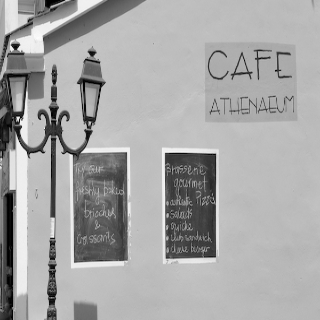 CAFE
ATHENAEUM
Try our
freshly baked
brioches
&
croissants
Brasserie
gourmet
authentic Pizza
Salads
quiche
club sandwich
cheese burger